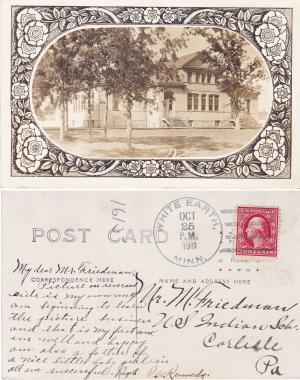 WHITE EARTH,
OCT
25
P.M.
1911
MINN.
1911
POST CARD
CORRESPONDENCE HERE
NAME AND ADDRESS HERE
My dear Mr. Friedman,
Picture on reverse
side is my own
am to learn
the picture business
and this is my first one
am well and happy
am also a father of
a nice little baby
all are successful.
Mr. M. Friedman
U S Indian Sch.
Carlisle
Pa